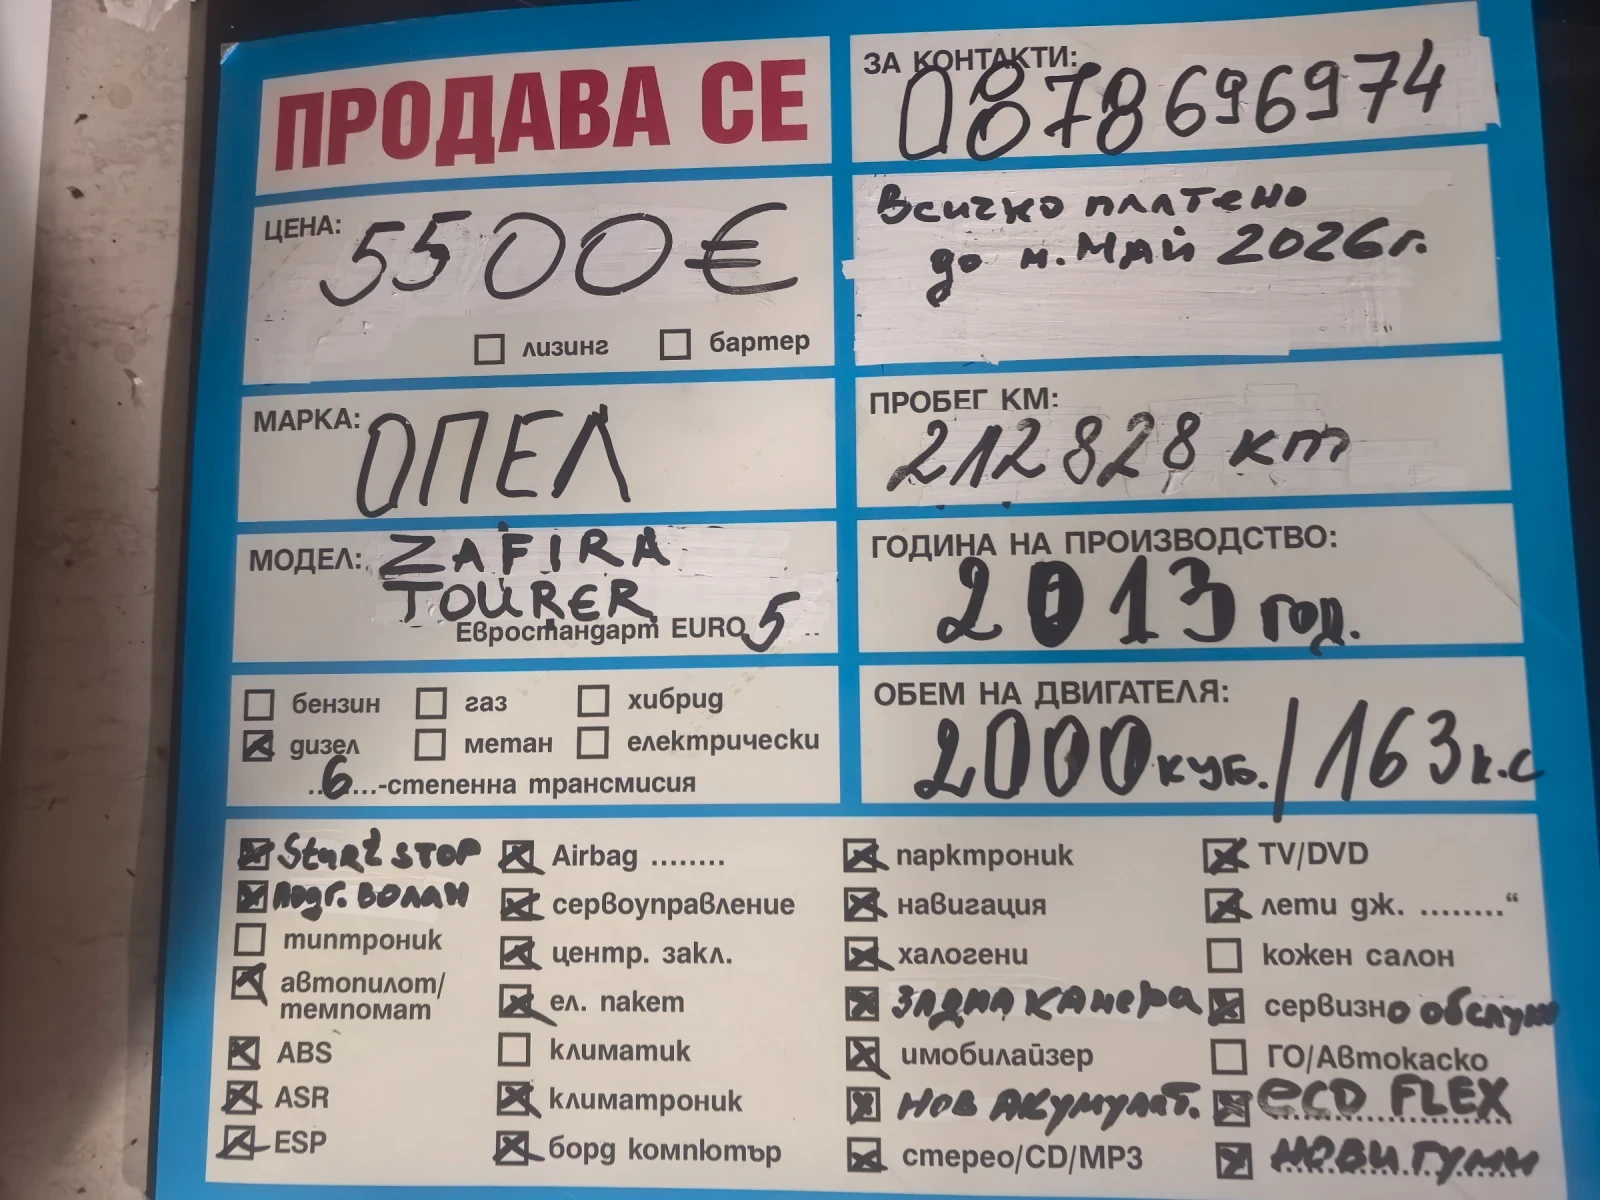 ПРОДАВА СЕ
ЦЕНА: 5500 €
лизинг бартер
МАРКА: ОПЕЛ
МОДЕЛ: ZAFIRA
TOURER
Евростандарт EURO 5 ..
бензин газ хибрид
дизел метан електрически
..6...-степенна трансмисия
ЗА КОНТАКТИ:
0878696974
Всичко платено
до м. МАЙ 2026г.
ПРОБЕГ КМ:
212828 km
ГОДИНА НА ПРОИЗВОДСТВО:
2013 год.
ОБЕМ НА ДВИГАТЕЛЯ:
2000 куб. / 163 к.с
Start STOP
Подг. ВОЛАН
типтроник
автопилот/
темпомат
ABS
ASR
ESP
Airbag ........
сервоуправление
центр. закл.
ел. пакет
климатик
климатроник
борд компютър
парктроник
навигация
халогени
ЗАДНА КАМЕРА
имобилайзер
НОВ АКУМУЛАТ.
стерео/CD/MP3
TV/DVD
лети дж. ........“
кожен салон
сервизно обслуж
ГО/Автокаско
eco FLEX
НОВИ ГУМИ